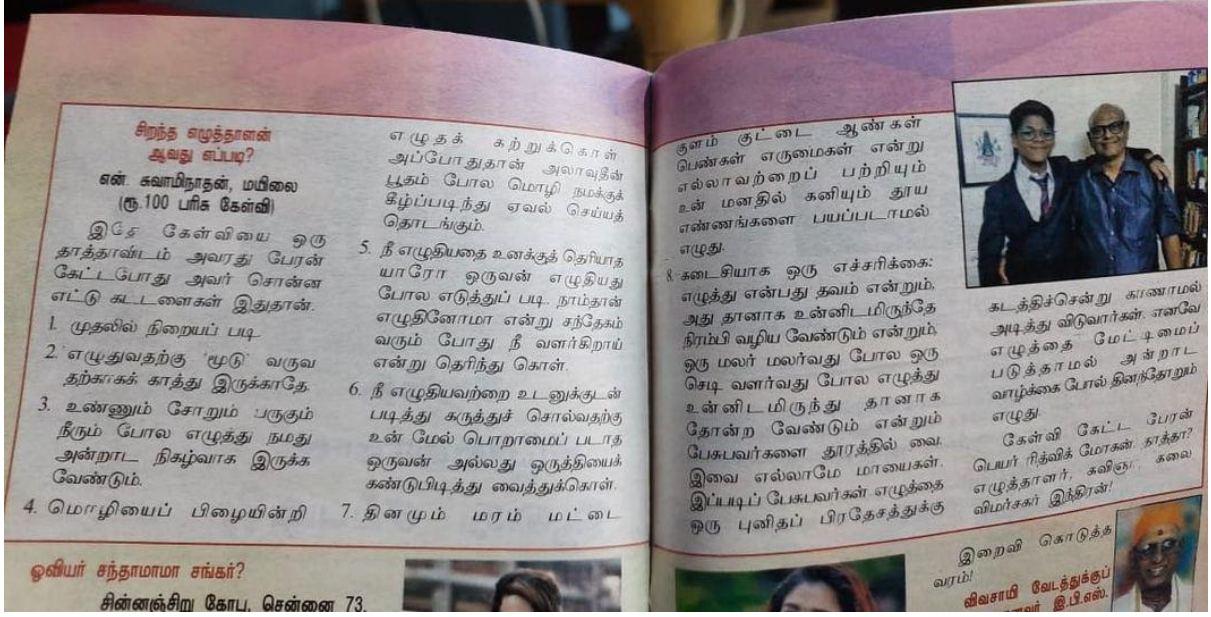 சிறந்த எழுத்தாளன்
ஆவது எப்படி?
என். சுவாமிநாதன், மயிலை
(ரூ.100 பரிசு கேள்வி)
இதே கேள்வியை ஒரு
தாத்தாவிடம் அவரது பேரன்
கேட்டபோது அவர் சொன்ன
எட்டு கட்டளைகள் இதுதான்.
1. முதலில் நிறையப் படி
2. எழுதுவதற்கு 'மூடு' வருவ
தற்காகக் காத்து இருக்காதே.
3. உண்ணும் சோறும் பருகும்
நீரும் போல எழுத்து நமது
அன்றாட நிகழ்வாக இருக்க
வேண்டும்.
4. மொழியைப் பிழையின்றி
எழுதக் கற்றுக்கொள்
அப்போதுதான் அலாவுதீன்
பூதம் போல மொழி நமக்குக்
கீழ்ப்படிந்து ஏவல் செய்யத்
தொடங்கும்.
5. நீ எழுதியதை உனக்குத் தெரியாத
யாரோ ஒருவன் எழுதியது
போல எடுத்துப் படி. நாம்தான்
எழுதினோமா என்று சந்தேகம்
வரும் போது நீ வளர்கிறாய்
என்று தெரிந்து கொள்.
6. நீ எழுதியவற்றை உடனுக்குடன்
படித்து கருத்துச் சொல்வதற்கு
உன் மேல் பொறாமைப் படாத
ஒருவன் அல்லது ஒருத்தியைக்
கண்டுபிடித்து வைத்துக்கொள்.
7. தினமும் மரம் மட்டை
குளம் குட்டை ஆண்கள்
பெண்கள் எருமைகள் என்று
எல்லாவற்றைப் பற்றியும்
உன் மனதில் கனியும் தூய
எண்ணங்களை பயப்படாமல்
எழுது.
8. கடைசியாக ஒரு எச்சரிக்கை:
எழுத்து என்பது தவம் என்றும்,
அது தானாக உன்னிடமிருந்தே
நிரம்பி வழிய வேண்டும் என்றும்,
ஒரு மலர் மலர்வது போல ஒரு
செடி வளர்வது போல எழுத்து
உன்னிடமிருந்து தானாக
தோன்ற வேண்டும் என்றும்
பேசுபவர்களை தூரத்தில் வை.
இவை எல்லாமே மாயைகள்.
இப்படிப் பேசுபவர்கள் எழுத்தை
ஒரு புனிதப் பிரதேசத்துக்கு
கடத்திச்சென்று காணாமல்
அடித்து விடுவார்கள். எனவே
எழுத்தை மேட்டிமைப்
படுத்தாமல் அன்றாட
வாழ்க்கை போல் தினந்தோறும்
எழுது.
கேள்வி கேட்ட பேரன்
பெயர் ரித்விக் மோகன். தாத்தா?
எழுத்தாளர், கவிஞர், கலை
விமர்சகர் இந்திரன்!
ஓவியர் சந்தாமாமா சங்கர்?
சின்னஞ்சிறு கோபு, சென்னை 73.
இறைவி கொடுத்த
வரம்!
விவசாயி வேடத்துக்குப்
இ.பி.எஸ்.